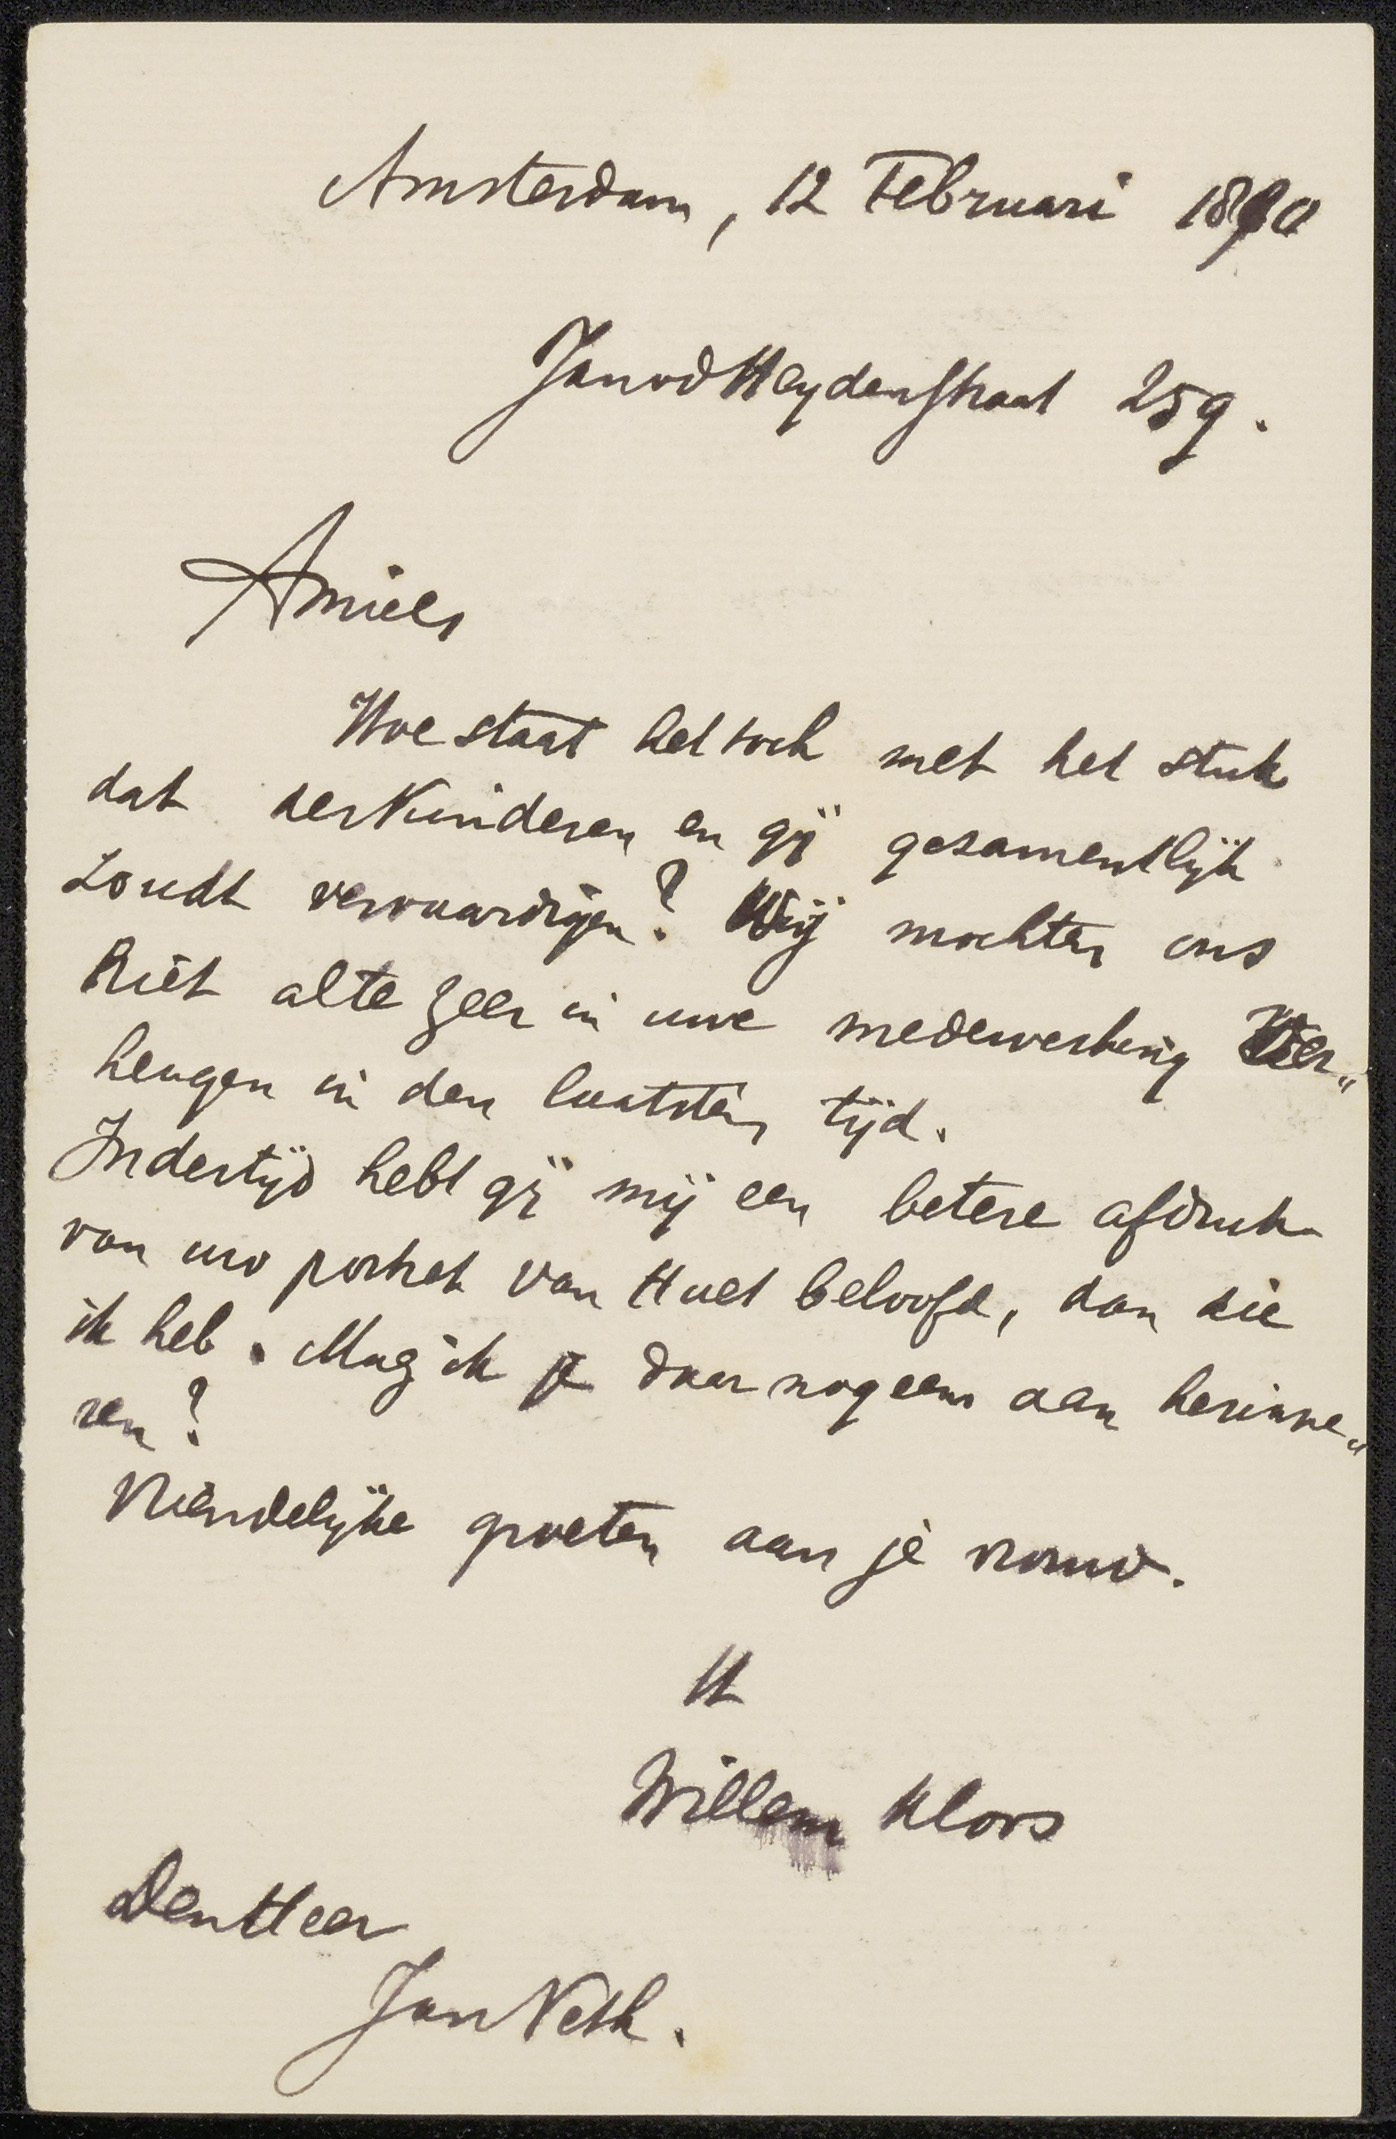 Amsterdam, 12 Februari 1890
Jan vd Heydenstraat 259.
Amice,
Hoe staat het toch met het stuk
dat derKinderen en gij gezamentlijk
zoudt vervaardigen? Wij mochten ons
niet al te zeer in uwe medewerking ver„
heugen in den laatsten tijd.
Indertijd hebt gij mij een betere afdruk
van uw portret van Huet beloofd, dan die
ik heb. Mag ik je daar nog eens aan herinne„
ren?
Vriendelijke groeten aan je vrouw.
tt
Willem Kloos
Den Heer
Jan Veth.